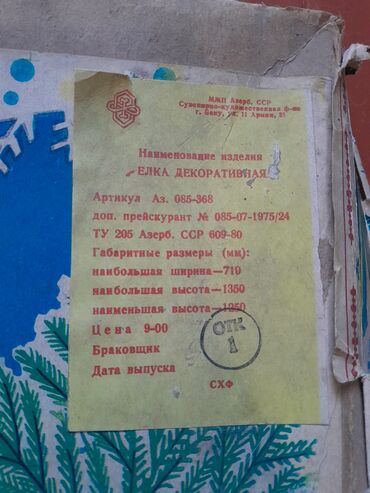 ММП Азерб. ССР
Сувенирно-художественная ф-ка
г. Баку, ул. 11 Армии,
Наименование изделия
ЕЛКА ДЕКОРАТИВНАЯ
Артикул Аз. 085-368
доп. прейскурант № 085-07-1975/24
ТУ 205 Азерб. ССР 609-80
Габаритные размеры (мм):
наибольшая ширина—710
наибольшая высота—1350
наименьшая высота—1250
Цена 9-00
ОТК
1
Браковщик
Дата выпуска
СХФ